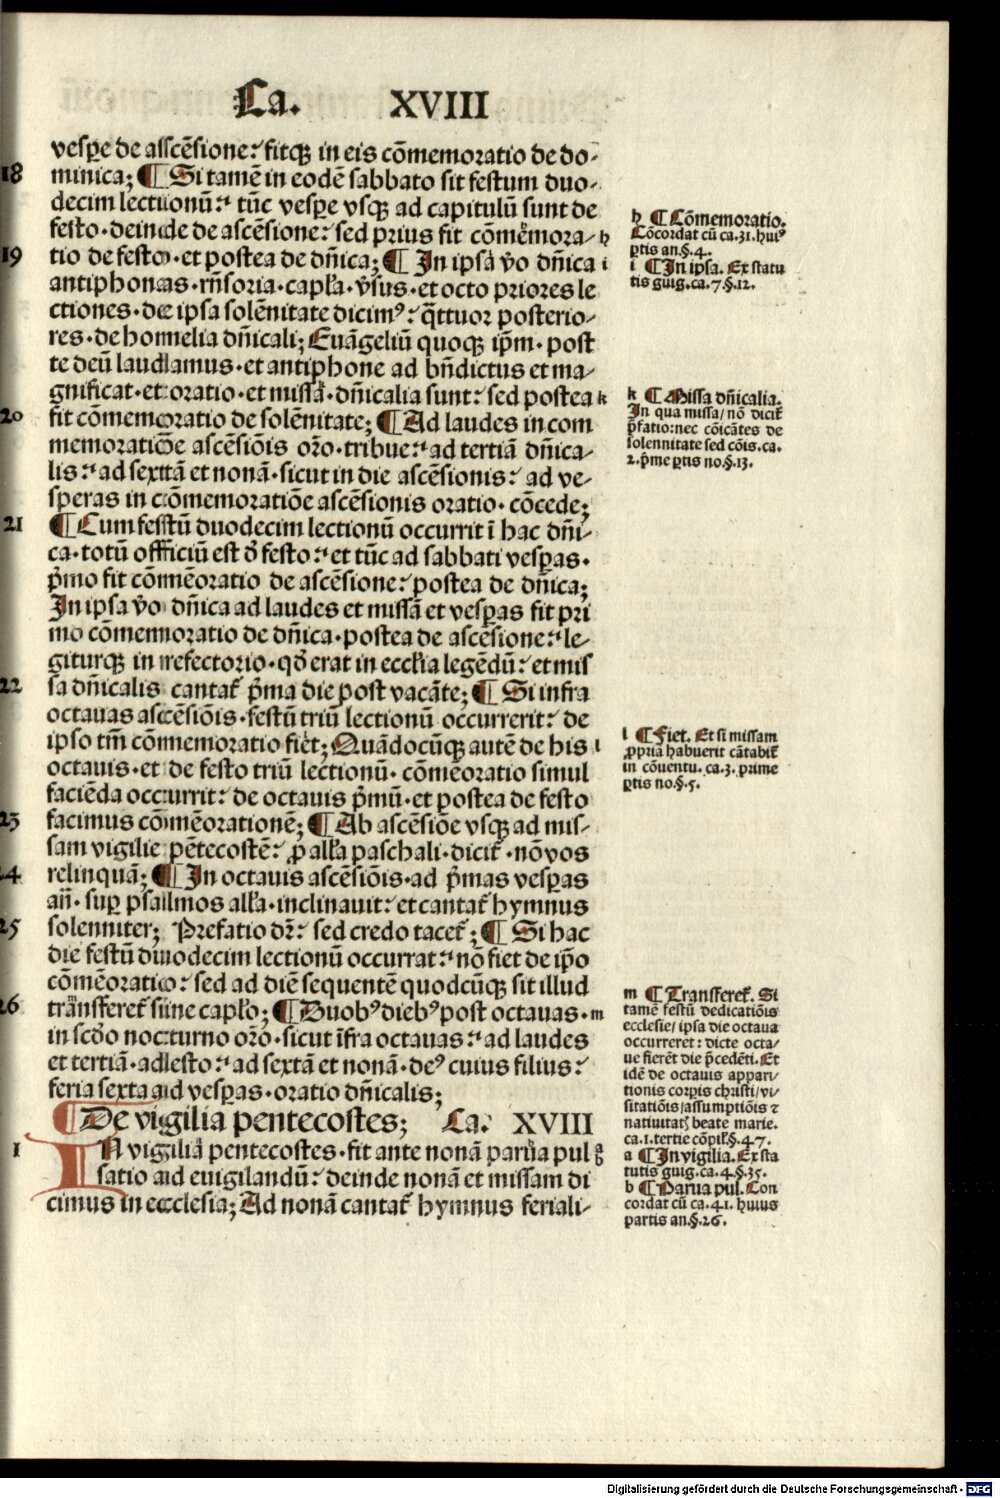 Ca. XVIII
vesꝑe de asscẽsione: fitqꝫ in eis cõmemoratio de do-
18 minica; ¶ Si tamẽ in eodẽ sabbato sit festum duo-
decim lectionũ: tũc vesꝑe vsqꝫ ad capitulũ sunt de
festo · deinde de ascẽsione: sed prius fit cõmẽmora- h
19 tio de festo · et postea de dñica; ¶ In ipsa vo dñica i
antiphonas · rñsoria · capła · vsus · et octo priores le
ctiones · de ipsa solẽnitate dicimꝰ: q̃ttuor posterio-
res · de homelia dñicali; Euãgeliũ quoqꝫ ip̃m · post
te deũ laudamus · et antiphone ad bñdictus et ma-
gnificat · et oratio · et missa · dñicalia sunt: sed postea k
20 fit cõmemoratio de solẽnitate; ¶ Ad laudes in com
memoratiõe ascẽsiõis oro · tribue: ad tertiã dñica-
lis: ad sextã et nonã · sicut in die ascẽsionis: ad ve-
speras in cõmemoratiõe ascẽsionis oratio · cõcede;
21 ¶ Cum festũ duodecim lectionũ occurrit ĩ hac dñi-
ca · totũ officiũ est ð festo: et tũc ad sabbati vesꝑas ·
p̃mo fit cõmẽoratio de ascẽsione: postea de dñica;
In ipsa vo dñica ad laudes et missã et vesꝑas fit pri
mo cõmemoratio de dñica · postea de ascẽsione: le-
giturqꝫ in refectorio · qð erat in ecclia legẽdũ: et mis
22 sa dñicalis cantat̃ p̃ma die post vacãte; ¶ Si infra
octauas ascẽsiõis · festũ triũ lectionũ occurrerit: de
ipso tm̃ cõmemoratio fiet; Quãdocũqꝫ autẽ de his l
octauis · et de festo triũ lectionũ · cõmẽoratio simul
faciẽda occurrit: de octauis p̃mũ · et postea de festo
23 facimus cõmẽorationẽ; ¶ Ab ascẽsiõe vsqꝫ ad mis-
sam vigilie pẽtecostẽ: ꝓ alła paschali · dicit̃ · nõ vos
24 relinquã; ¶ In octauis ascẽsiõis · ad p̃mas vesꝑas
añ · suꝑ psalmos alła · inclinauit: et cantat̃ hymnus
25 solenniter; Prefatio dr̃: sed credo tacet̃; ¶ Si hac
die festũ duodecim lectionũ occurrat: nõ fiet de ip̃o
cõmẽoratio: sed ad diẽ sequentẽ quodcũqꝫ sit illud
26 trãnsferet̃ sine capło; ¶ Duobꝰ diebꝰ post octauas · m
in scðo nocturno oro · sicut ĩfra octauas: ad laudes
et tertiã · adesto: ad sextã et nonã · deꝰ cuius filius:
feria sexta ad vesꝑas · oratio dñicalis;
¶ De vigilia pentecostes; Ca: XVIII
1 IN vigilia pentecostes · fit ante nonã parua pul a b
satio ad euigilandũ: deinde nonã et missam di
cimus in ecclesia; Ad nonã cantat̃ hymnus feriali-
h ¶ Cõmemoratio.
Cõcordat cũ ca. 31. huiꝰ
ꝑtis an. §. 4.
i ¶ In ipsa. Ex statu
tis guig. ca. 7. §. 12.
k ¶ Missa dñicalis.
In qua missa / nõ dicit̃
p̃fatio: nec cõicãtes de
solennitate sed cõis. ca.
2. p̃me ꝑtis no. §. 13.
l ¶ Fiet. Et si missam
ꝓpriã habuerit cãtabit̃
in cõuentu. ca. 3. prime
ꝑtis no. §. 5.
m ¶ Transferet̃. Si
tamẽ festũ dedicatiõis
ecclesie / ipsa die octaua
occurreret: dicte octa-
ue fierẽt die p̃cedẽti. Et
idẽ de octauis appari-
tionis corpis christi / vi-
sitatiõis / assumptiõis ⁊
natiuitatꝭ beate marie.
ca. 1. tertie cõpił. §. 47.
a ¶ In vigilia. Ex sta
tutis guig. ca. 4. §. 35.
b ¶ Parua pul. Con
cordat cũ ca. 41. huius
partis an. §. 26.
Digitalisierung gefördert durch die Deutsche Forschungsgemeinschaft - DFG